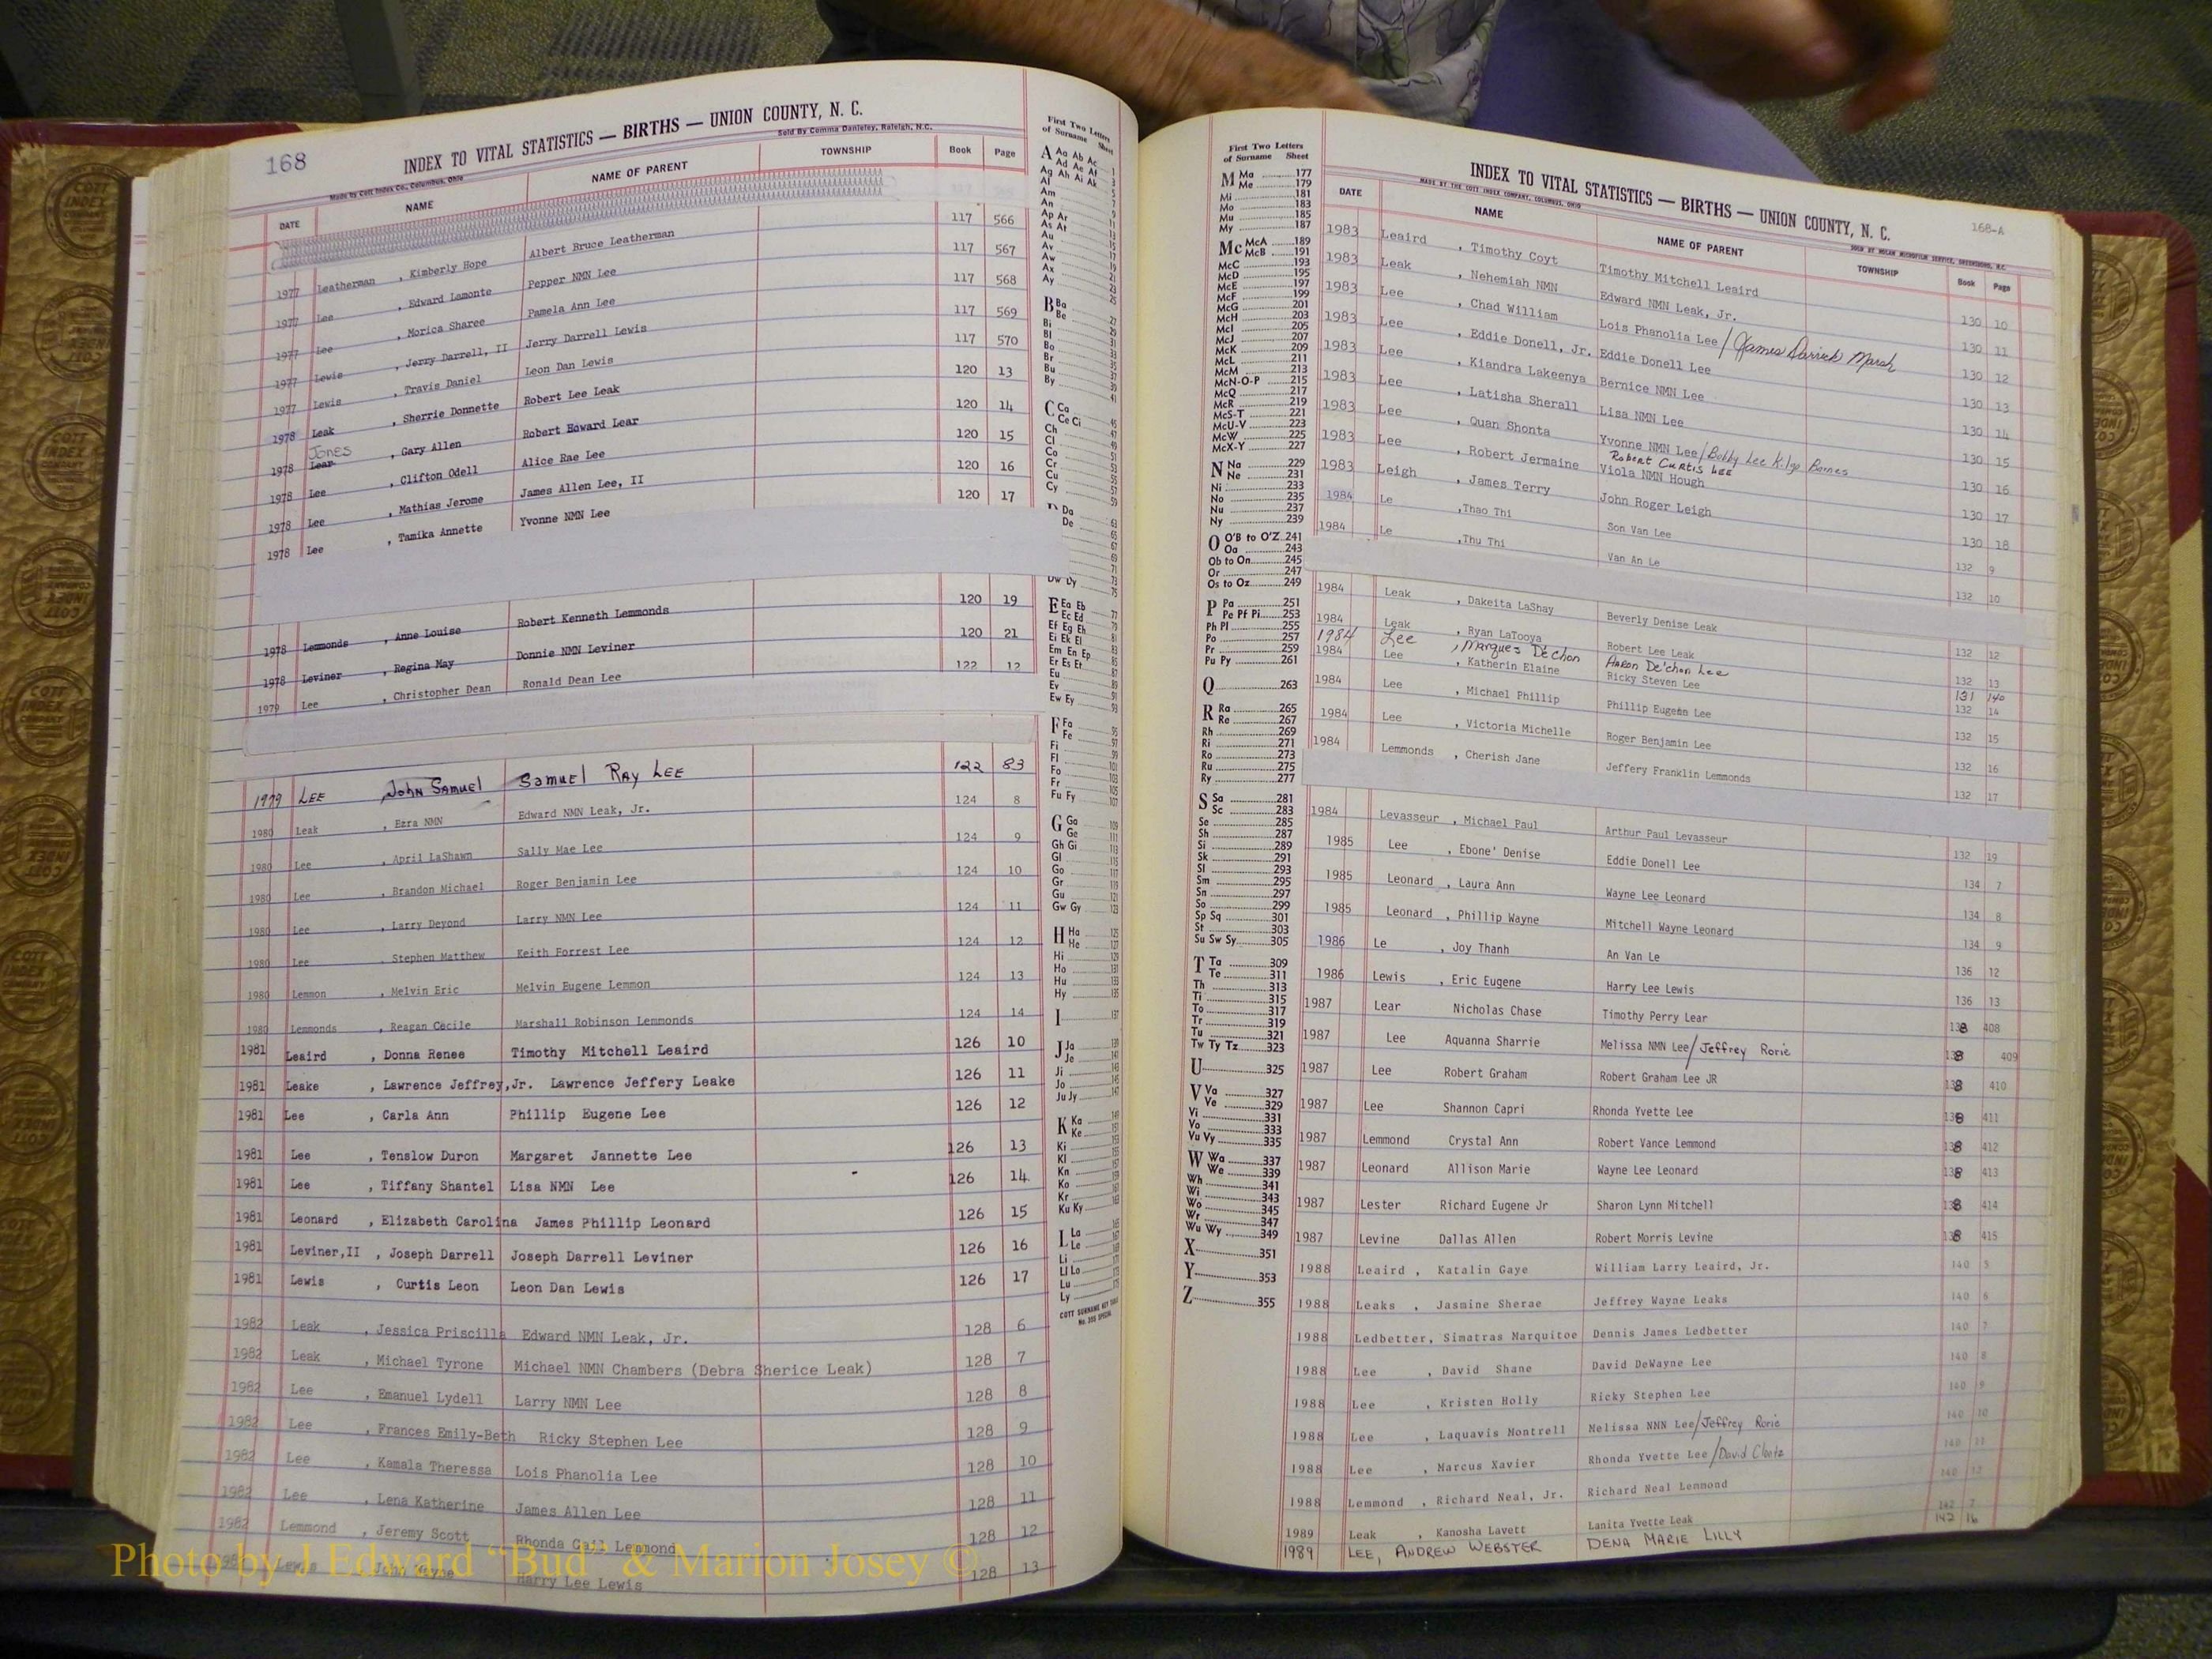 168
INDEX TO VITAL STATISTICS — BIRTHS — UNION COUNTY, N. C.
Made by Cott Index Co., Columbus, Ohio
Sold By Comma Danieley, Raleigh, N.C.
DATE NAME NAME OF PARENT TOWNSHIP Book Page
1977 Leatherman , Kimberly Hope Albert Bruce Leatherman 117 566
1977 Lee , Edward Lamonte Pepper NMN Lee 117 567
1977 Lee , Morica Sharee Pamela Ann Lee 117 568
1977 Lewis , Jerry Darrell, II Jerry Darrell Lewis 117 569
1977 Lewis , Travis Daniel Leon Dan Lewis 117 570
1978 Leak , Sherrie Donnette Robert Lee Leak 120 13
Jones
1978 Lear , Gary Allen Robert Edward Lear 120 14
1978 Lee , Clifton Odell Alice Rae Lee 120 15
1978 Lee , Mathias Jerome James Allen Lee, II 120 16
1978 Lee , Tamika Annette Yvonne NMN Lee 120 17
1978 Lemmonds , Anne Louise Robert Kenneth Lemmonds 120 19
1978 Leviner , Regina May Donnie NMN Leviner 120 21
1979 Lee , Christopher Dean Ronald Dean Lee 122 12
1979 LEE , John Samuel Samuel Ray Lee 122 83
1980 Leak , Ezra NMN Edward NMN Leak, Jr. 124 8
1980 Lee , April LaShawn Sally Mae Lee 124 9
1980 Lee , Brandon Michael Roger Benjamin Lee 124 10
1980 Lee , Larry Devond Larry NMN Lee 124 11
1980 Lee , Stephen Matthew Keith Forrest Lee 124 12
1980 Lemmon , Melvin Eric Melvin Eugene Lemmon 124 13
1980 Lemmonds , Reagan Cecile Marshall Robinson Lemmonds 124 14
1981 Leaird , Donna Renee Timothy Mitchell Leaird 126 10
1981 Leake , Lawrence Jeffrey,Jr. Lawrence Jeffery Leake 126 11
1981 Lee , Carla Ann Phillip Eugene Lee 126 12
1981 Lee , Tenslow Duron Margaret Jannette Lee 126 13
1981 Lee , Tiffany Shantel Lisa NMN Lee 126 14
1981 Leonard , Elizabeth Carolina James Phillip Leonard 126 15
1981 Leviner,II , Joseph Darrell Joseph Darrell Leviner 126 16
1981 Lewis , Curtis Leon Leon Dan Lewis 126 17
1982 Leak , Jessica Priscilla Edward NMN Leak, Jr. 128 6
1982 Leak , Michael Tyrone Michael NMN Chambers (Debra Sherice Leak) 128 7
1982 Lee , Emanuel Lydell Larry NMN Lee 128 8
1982 Lee , Frances Emily-Beth Ricky Stephen Lee 128 9
1982 Lee , Kamala Theressa Lois Phanolia Lee 128 10
1982 Lee , Lena Katherine James Allen Lee 128 11
1982 Lemmond , Jeremy Scott Rhonda Gail Lemmond 128 12
Lewis , John Harry Lee Lewis 128 13
Photo by J Edward "Bud" & Marion Josey ©
First Two Letters
of Surname Sheet
A Aa Ab Ac
Ad Ae Af
Ag Ah Ai Ak
Al
Am
An
Ap Ar
As At
Au
Av
Aw
Ax
Ay
B Ba
Be
Bi
Bl
Bo
Br
Bu
By
C Ca
Ce Ci
Ch
Cl
Co
Cr
Cu
Cy
Da
De
Dw Dy
E Ea Eb
Ec Ed
Ef Eg Eh
Ei Ek El
Em En Ep
Er Es Et
Eu
Ev
Ew Ey
F Fa
Fe
Fi
Fl
Fo
Fr
Fu Fy
G Ga
Ge
Gh Gi
Gl
Go
Gr
Gu
Gw Gy
H Ha
He
Hi
Ho
Hu
Hy
I
J Ja
Je
Ji
Jo
Ju Jy
K Ka
Ke
Ki
Kl
Kn
Ko
Kr
Ku Ky
L La
Le
Li
Ll Lo
Lu
Ly
COTT SURNAME KEY
First Two Letters
of Surname Sheet
M Ma 177
Me 179
Mi 181
Mo 183
Mu 185
My 187
Mc McA 189
McB 191
McC 193
McD 195
McE 197
McF 199
McG 201
McH 203
McI 205
McJ 207
McK 209
McL 211
McM 213
McN-O-P 215
McQ 217
McR 219
McS-T 221
McU-V 223
McW 225
McX-Y 227
N Na 229
Ne 231
Ni 233
No 235
Nu 237
Ny 239
O O'B to O'Z 241
Oa 243
Ob to On 245
Or 247
Os to Oz 249
P Pa 251
Pe Pf Pi 253
Ph Pl 255
Po 257
Pr 259
Pu Py 261
Q 263
R Ra 265
Re 267
Rh 269
Ri 271
Ro 273
Ru 275
Ry 277
S Sa 281
Sc 283
Se 285
Sh 287
Si 289
Sk 291
Sl 293
Sm 295
Sn 297
So 299
Sp Sq 301
St 303
Su Sw Sy 305
T Ta 309
Te 311
Th 313
Ti 315
To 317
Tr 319
Tu 321
Tw Ty Tz 323
U 325
V Va 327
Ve 329
Vi 331
Vo 333
Vu Vy 335
W Wa 337
We 339
Wh 341
Wi 343
Wo 345
Wr 347
Wu Wy 349
X 351
Y 353
Z 355
168-A
INDEX TO VITAL STATISTICS — BIRTHS — UNION COUNTY, N. C.
MADE BY THE COTT INDEX COMPANY, COLUMBUS, OHIO
SOLD BY MICROFILM SERVICE, GREENSBORO, N.C.
DATE NAME NAME OF PARENT TOWNSHIP Book Page
1983 Leaird , Timothy Coyt Timothy Mitchell Leaird 130 10
1983 Leak , Nehemiah NMN Edward NMN Leak, Jr. 130 11
1983 Lee , Chad William Lois Phanolia Lee / James Darrick Marsh 130 12
1983 Lee , Eddie Donell, Jr. Eddie Donell Lee 130 13
1983 Lee , Kiandra Lakeenya Bernice NMN Lee 130 14
1983 Lee , Latisha Sherall Lisa NMN Lee 130 15
1983 Lee , Quan Shonta Yvonne NMN Lee/Bobby Lee Kilgo Barnes 130 16
Robert Curtis Lee
1983 Lee , Robert Jermaine Viola NMN Hough 130 17
1983 Leigh , James Terry John Roger Leigh 130 18
1984 Le ,Thao Thi Son Van Lee 132 9
1984 Le ,Thu Thi Van An Le 132 10
1984 Leak , Dakeita LaShay Beverly Denise Leak 132 12
1984 Leak , Ryan LaTooya Robert Lee Leak 132 13
1984 Lee , Marques De'chon Aaron De'chon Lee 131 140
1984 Lee , Katherin Elaine Ricky Steven Lee 132 14
1984 Lee , Michael Phillip Phillip Eugene Lee 132 15
1984 Lee , Victoria Michelle Roger Benjamin Lee 132 16
1984 Lemmonds , Cherish Jane Jeffery Franklin Lemmonds 132 17
1984 Levasseur , Michael Paul Arthur Paul Levasseur 132 19
1985 Lee , Ebone' Denise Eddie Donell Lee 134 7
1985 Leonard , Laura Ann Wayne Lee Leonard 134 8
1985 Leonard , Phillip Wayne Mitchell Wayne Leonard 134 9
1986 Le , Joy Thanh An Van Le 136 12
1986 Lewis , Eric Eugene Harry Lee Lewis 136 13
1987 Lear Nicholas Chase Timothy Perry Lear 138 408
1987 Lee Aquanna Sharrie Melissa NMN Lee/Jeffrey Rorie 138 409
1987 Lee Robert Graham Robert Graham Lee JR 138 410
1987 Lee Shannon Capri Rhonda Yvette Lee 138 411
1987 Lemmond Crystal Ann Robert Vance Lemmond 138 412
1987 Leonard Allison Marie Wayne Lee Leonard 138 413
1987 Lester Richard Eugene Jr Sharon Lynn Mitchell 138 414
1987 Levine Dallas Allen Robert Morris Levine 138 415
1988 Leaird , Katalin Gaye William Larry Leaird, Jr. 140 5
1988 Leaks , Jasmine Sherae Jeffrey Wayne Leaks 140 6
1988 Ledbetter, Simatras Marquitoe Dennis James Ledbetter 140 7
1988 Lee , David Shane David DeWayne Lee 140 8
1988 Lee , Kristen Holly Ricky Stephen Lee 140 9
1988 Lee , Laquavis Montrell Melissa NNN Lee/Jeffrey Rorie 140 10
1988 Lee , Marcus Xavier Rhonda Yvette Lee/David Clontz 140 11
1988 Lemmond , Richard Neal, Jr. Richard Neal Lemmond 140 12
1989 Leak , Kanosha Lavett Lanita Yvette Leak 142 7
1989 LEE, ANDREW WEBSTER DENA MARIE LILLY 142 16